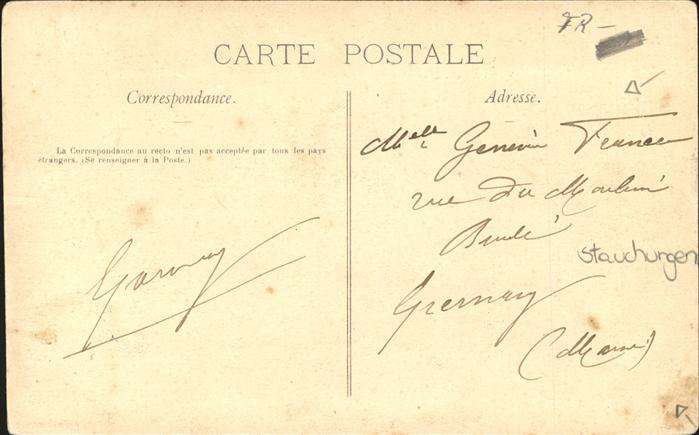 FR -
CARTE POSTALE
Correspondance.
Adresse.
La Correspondance au recto n'est pas acceptée par tous les pays
étrangers. (Se renseigner à la Poste.)
Melle
rue du Moulin
Brulé
(Marne)
stauchungen